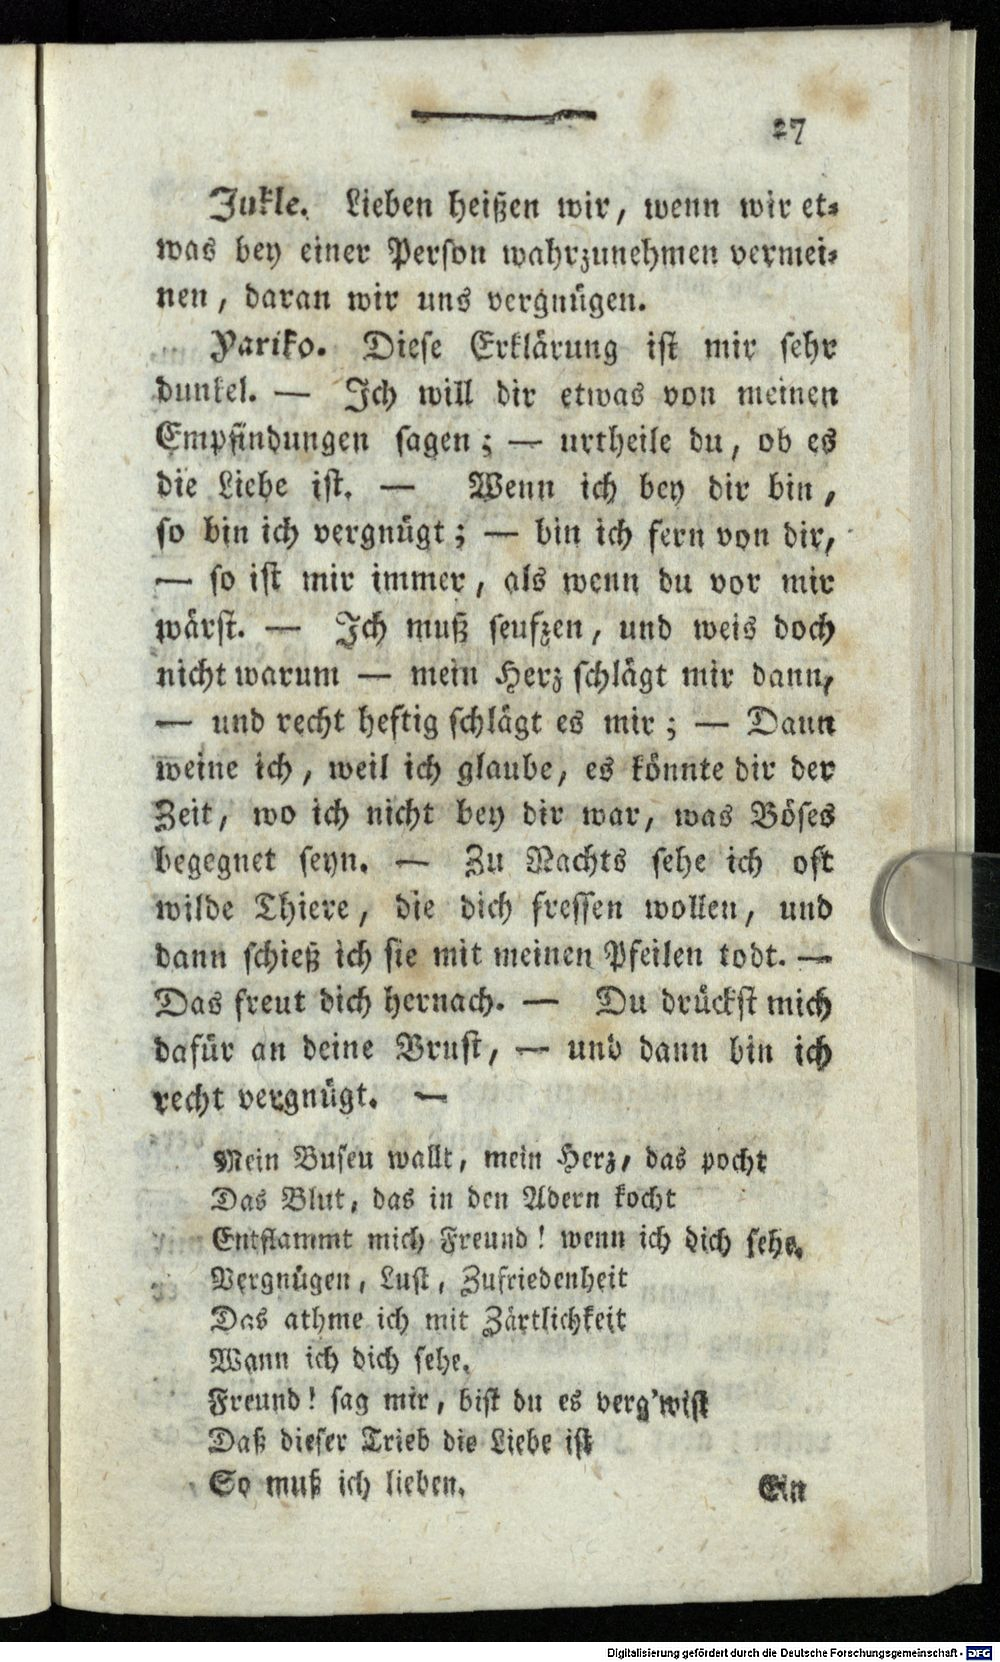 27
Jukle. Lieben heißen wir, wenn wir et-
was bey einer Person wahrzunehmen vermei-
nen, daran wir uns vergnügen.
Yariko. Diese Erklärung ist mir sehr
dunkel. — Ich will dir etwas von meinen
Empfindungen sagen; — urtheile du, ob es
die Liebe ist. — Wenn ich bey dir bin,
so bin ich vergnügt; — bin ich fern von dir,
— so ist mir immer, als wenn du vor mir
wärst. — Ich muß seufzen, und weis doch
nicht warum — mein Herz schlägt mir dann,
— und recht heftig schlägt es mir; — Dann
weine ich, weil ich glaube, es könnte dir der
Zeit, wo ich nicht bey dir war, was Böses
begegnet seyn. — Zu Nachts sehe ich oft
wilde Thiere, die dich fressen wollen, und
dann schieß ich sie mit meinen Pfeilen todt. —
Das freut dich hernach. — Du drückst mich
dafür an deine Brust, — und dann bin ich
recht vergnügt. —
Mein Busen wallt, mein Herz, das pocht
Das Blut, das in den Adern kocht
Entflammt mich Freund! wenn ich dich sehe.
Vergnügen, Lust, Zufriedenheit
Das athme ich mit Zärtlichkeit
Wann ich dich sehe.
Freund! sag mir, bist du es verg'wist
Daß dieser Trieb die Liebe ist
So muß ich lieben.
Ein
Digitalisierung gefördert durch die Deutsche Forschungsgemeinschaft - DFG